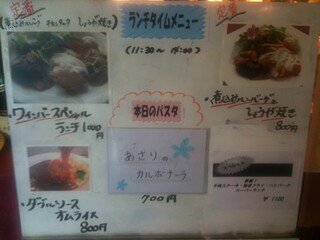 定番
(煮込みハンバーグ チキンカツ しょうが焼き)
ワインバースペシャル
ランチ 1000円
ダブルソース
オムライス
800円
ランチタイムメニュー
(11:30〜14:00)
本日のパスタ
あさりの
カルボナーラ
700円
定番
煮込みハンバーグ&
しょうが焼き
800円